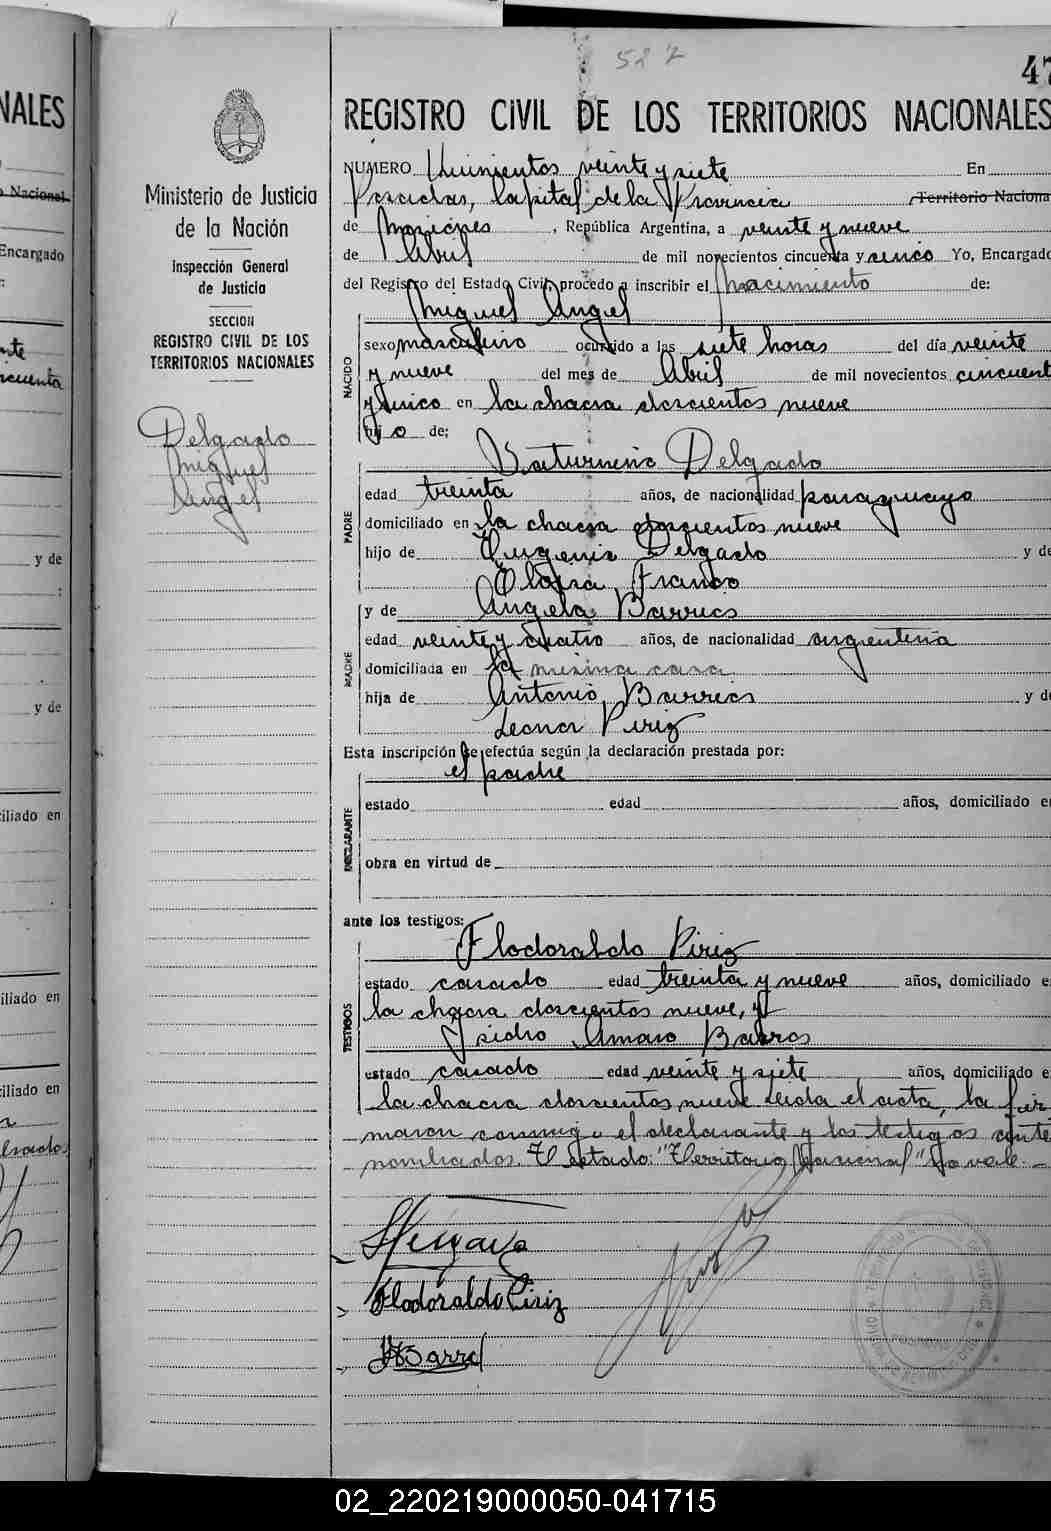 527
47
REGISTRO CIVIL DE LOS TERRITORIOS NACIONALES
NUMERO Quinientos veinte y siete En
Posadas, Capital de la Provincia Territorio Naciona
de Misiones, República Argentina, a veinte y nueve
de Abril de mil novecientos cincuenta y cinco Yo, Encargado
del Registro del Estado Civil, procedo a inscribir el nacimiento de:
Miguel Angel
NACIDO
sexo masculino ocurrido a las siete horas del día veinte
y nueve del mes de Abril de mil novecientos cincuent
y cinco en la chacra doscientos nueve
hijo de:
Saturnino Delgado
PADRE
edad treinta años, de nacionalidad paraguaya
domiciliado en la chacra doscientos nueve
hijo de Eugenio Delgado y de
Franco
y de Angela Barrios
MADRE
edad veinte y cuatro años, de nacionalidad argentina
domiciliada en la misma casa
hija de Antonio Barrios y de
Leonor Piriz
Esta inscripción se efectúa según la declaración prestada por:
el padre
DECLARANTE
estado edad años, domiciliado en
obra en virtud de
ante los testigos:
Flodoraldo Piriz
TESTIGOS
estado casado edad treinta y nueve años, domiciliado e
la chacra doscientos nueve, y
Isidro Amaro Barros
estado casado edad veinte y siete años, domiciliado e
la chacra doscientos nueve Leida el acta, la fir
maron conmigo el declarante y los testigos ante
nombrados. Testado: "Territorio Nacional" No vale.-
Flodoraldo Piriz
Ministerio de Justicia
de la Nación
Inspección General
de Justicia
SECCION
REGISTRO CIVIL DE LOS
TERRITORIOS NACIONALES
Delgado
Miguel
Angel
NALES
o Nacional
Encargado
y de
y de
iliado en
iliado en
iliado en
02_220219000050-041715